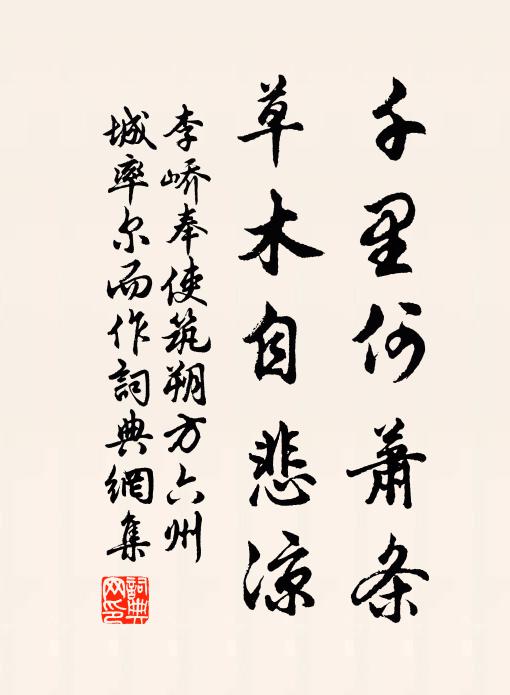 千里何萧条
草木自悲凉
李峤奉使筑朔方六州
城率尔而作詞典網集
詞典網印